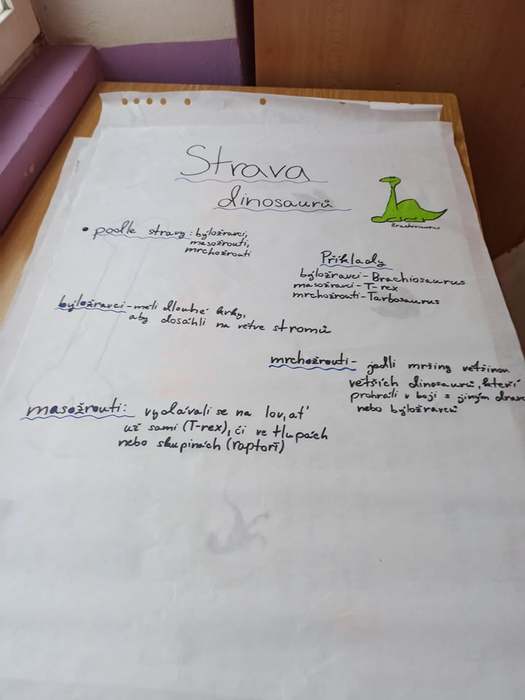 Strava
dinosaurů
• podle stravy: býložravci,
masožrouti,
mrchožrouti
Příklady
býložravci - Brachiosaurus
masožraví - T-rex
mrchožrouti - Tarbosaurus
Brachiosaurus
býložravci - měli dlouhé krky,
aby dosáhli na větve stromů
mrchožrouti - jedli mršiny většinou
větších dinosaurů, kteří
prohráli v boji s jiným dravcem
nebo býložravců
masožrouti: vydávali se na lov, ať
už sami (T-rex), či ve tlupách
nebo skupinách (raptoři)